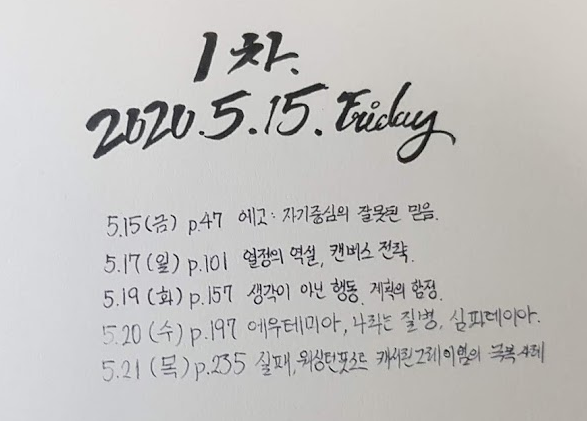 1차.
2020.5.15. Friday
5.15(금) p.47 에고: 자기중심의 잘못된 믿음.
5.17(일) p.101 열정의 역설, 캔버스 전략.
5.19(화) p.157 생각이 아닌 행동, 계획의 함정.
5.20(수) p.197 에우테미아, 나라는 질병, 심파테이아.
5.21(목) p.235 실패, 워싱턴포스트 캐서린그레이엄의 극복사례